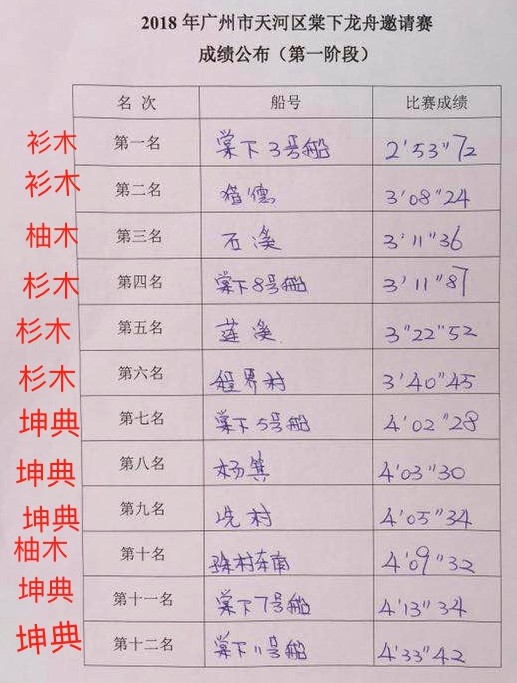 2018年广州市天河区棠下龙舟邀请赛
成绩公布（第一阶段）
名次 船号 比赛成绩
衫木 第一名 棠下3号船 2'53"72
衫木 第二名 猎德 3'08"24
柚木 第三名 石溪 3'11"36
杉木 第四名 棠下8号船 3'11"87
杉木 第五名 莲溪 3"22"52
杉木 第六名 程界村 3'40"45
坤典 第七名 棠下5号船 4'02"28
坤典 第八名 杨箕 4'03"30
坤典 第九名 冼村 4'05"34
柚木 第十名 珠村东南 4'09"32
坤典 第十一名 棠下7号船 4'13"34
坤典 第十二名 棠下11号船 4'33"42